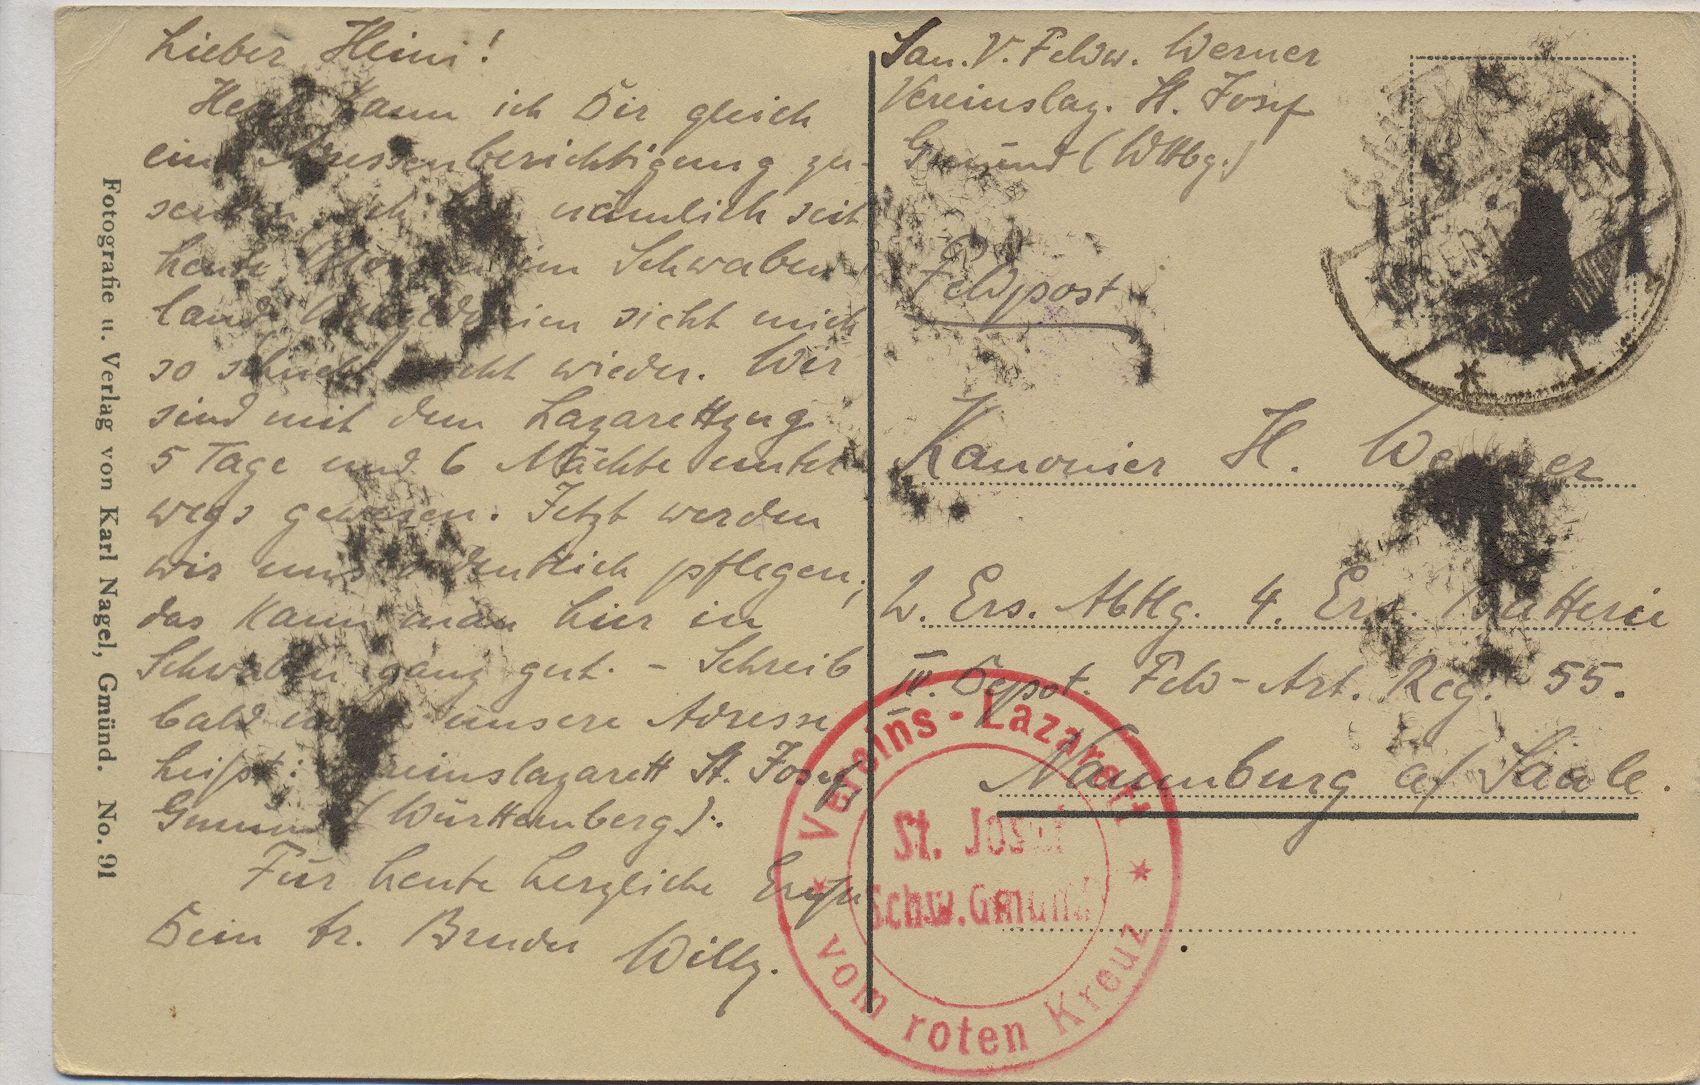 Lieber Heini!
Heute kann ich Dir gleich
eine Adressenberichtigung zu-
senden. Ich bin nämlich seit
heute Morgen im Schwaben-
land.
sieht mich
so schnell nicht wieder. Wir
sind mit dem Lazarettzug
5 Tage und 6 Nächte unter
wegs gewesen. Jetzt werden
wir uns ordentlich pflegen,
das kann man hier in
Schwaben ganz gut. - Schreib
bald unsere Adresse
heißt: Vereinslazarett St. Josef
Gmünd (Württemberg).
Für heute herzliche
Dein tr. Bruder Willy.
San. V. Feldw. Werner
Vereinslaz. St. Josef
Gmünd (Wttbg.)
Feldpost
Kanonier H. Werner
2. Ers. Abtlg. 4. Ers. Batterie
Depot. Feld-Art. Reg. 55.
Naumburg a/ Saale.
Vereins-Lazarett
St. Josef
Schw. Gmünd
vom roten Kreuz
Fotografie u. Verlag von Karl Nagel, Gmünd. No. 91